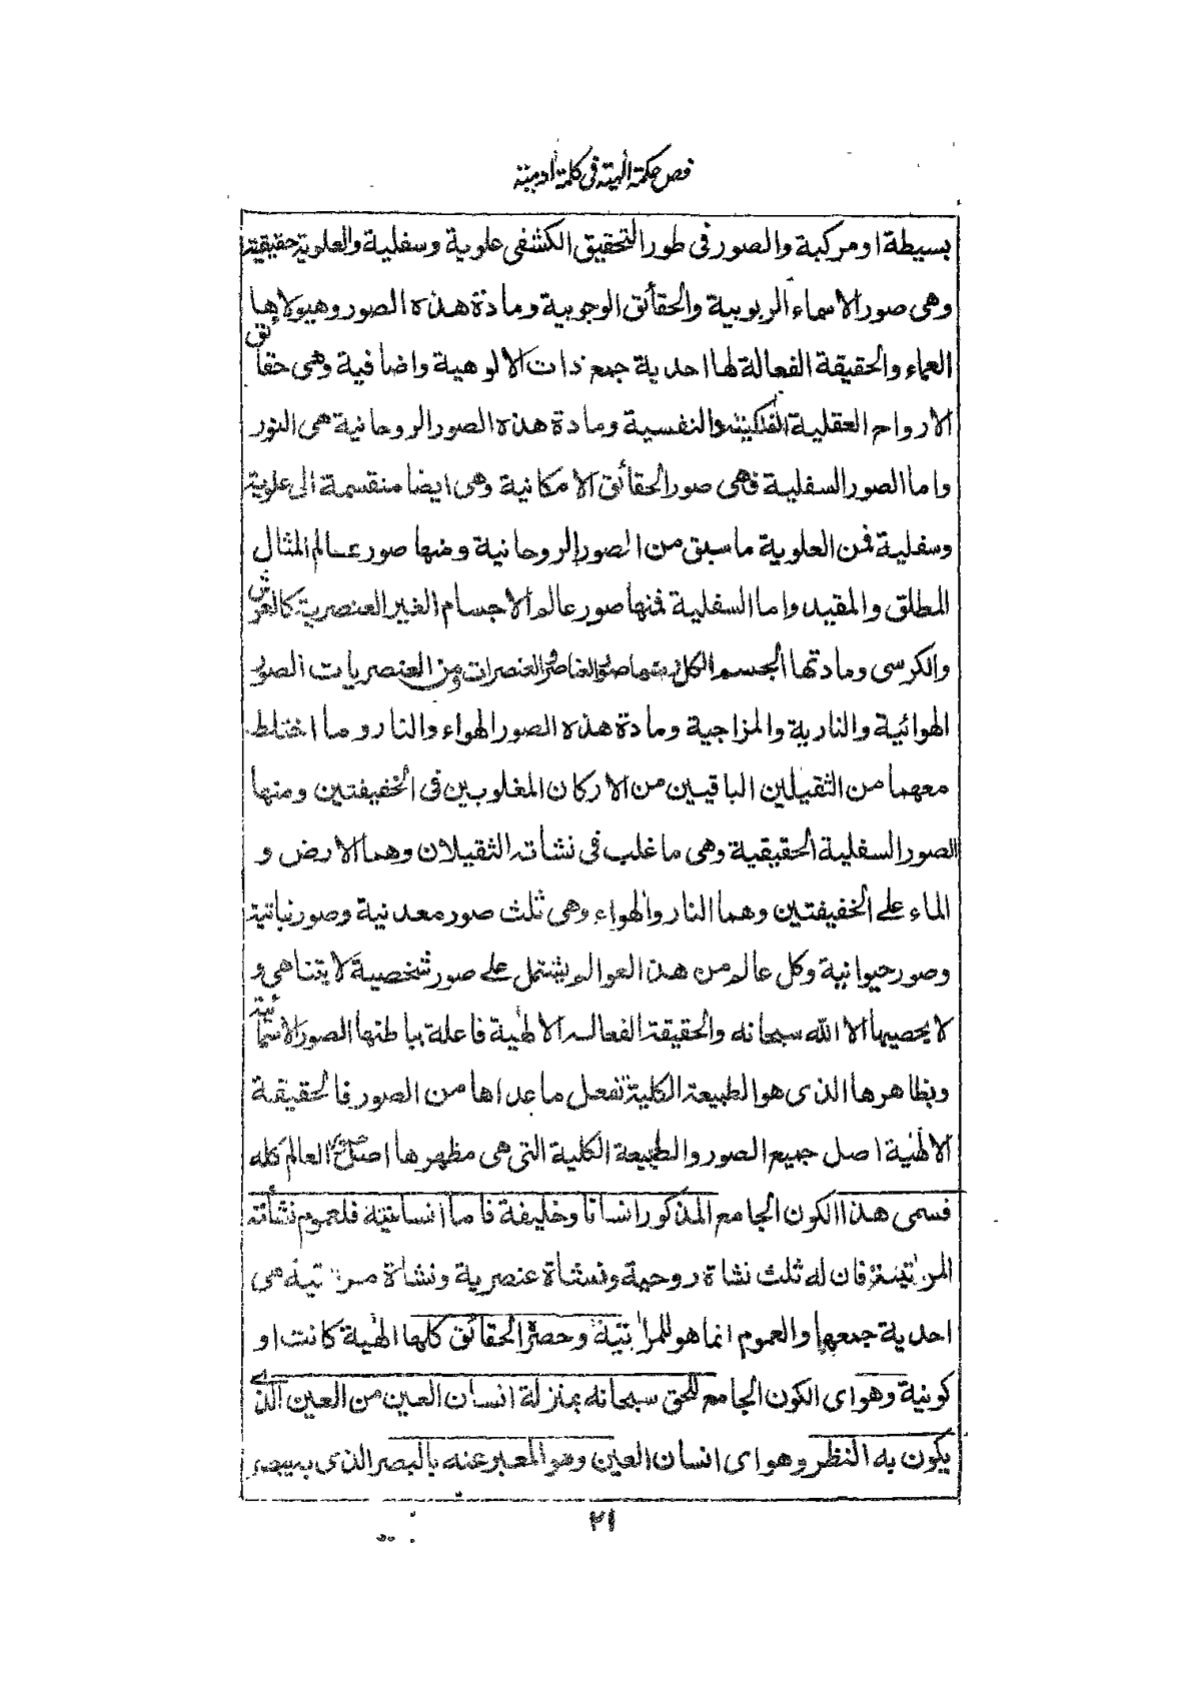 فص حكمة الهية فى كلمة آدمية
بسيطة او مركبة والصور فى طور التحقيق الكشفى علوية وسفلية والعلوية حقيقية
وهى صور الاسماء الربوبية والحقائق الوجوبية ومادة هذه الصور وهيولاها
العماء والحقيقة الفعالة لها احدية جمع ذات الالوهية واضافية وهى حقائق
الارواح العقلية الملكية والنفسية ومادة هذه الصور الروحانية هى النور
واما الصور السفلية فهى صور الحقائق الامكانية وهى ايضا منقسمة الى علوية
وسفلية فمن العلوية ما سبق من الصور الروحانية ومنها صور عالم المثال
المطلق والمقيد واما السفلية فمنها صور عالم الاجسام الغير العنصرية كالعرش
والكرسى ومادتها الجسم الكل ومنها صور العناصر والعنصريات ومن العنصريات الصور
الهوائية والنارية والمزاجية ومادة هذه الصور الهواء والنار وما اختلط
معهما من الثقيلين الباقيين من الاركان المغلوبين فى الخفيفتين ومنها
الصور السفلية الحقيقية وهى ما غلب فى نشأته الثقيلان وهما الارض و
الماء على الخفيفتين وهما النار والهواء وهى ثلث صور معدنية وصور نباتية
وصور حيوانية وكل عالم من هذه العوالم يشتمل على صور شخصية لا يتناهى و
لا يحصيها الا الله سبحانه والحقيقة الفعالة الالهية فاعلة بباطنها الصور الاسمائية
وبظاهرها الذى هو الطبيعة الكلية تفعل ما عداها من الصور فالحقيقة
الالهية اصل جميع الصور والطبيعة الكلية التى هى مظهرها اصل صور العالم كله
فسمى هذا الكون الجامع المذكور انسانا وخليفة فاما انسانيته فلعموم نشأته
المرتبية فان له ثلث نشاة روحية ونشاة عنصرية ونشاة مرتبية هى
احدية جمعها والعموم انما هو للمراتبية وحصره الحقائق كلها الهية كانت او
كونية وهو اى الكون الجامع للحق سبحانه بمنزلة انسان العين من العين الذى
يكون به النظر وهو اى انسان العين وهو المعبر عنه بالبصر الذى به يبصر
٢١